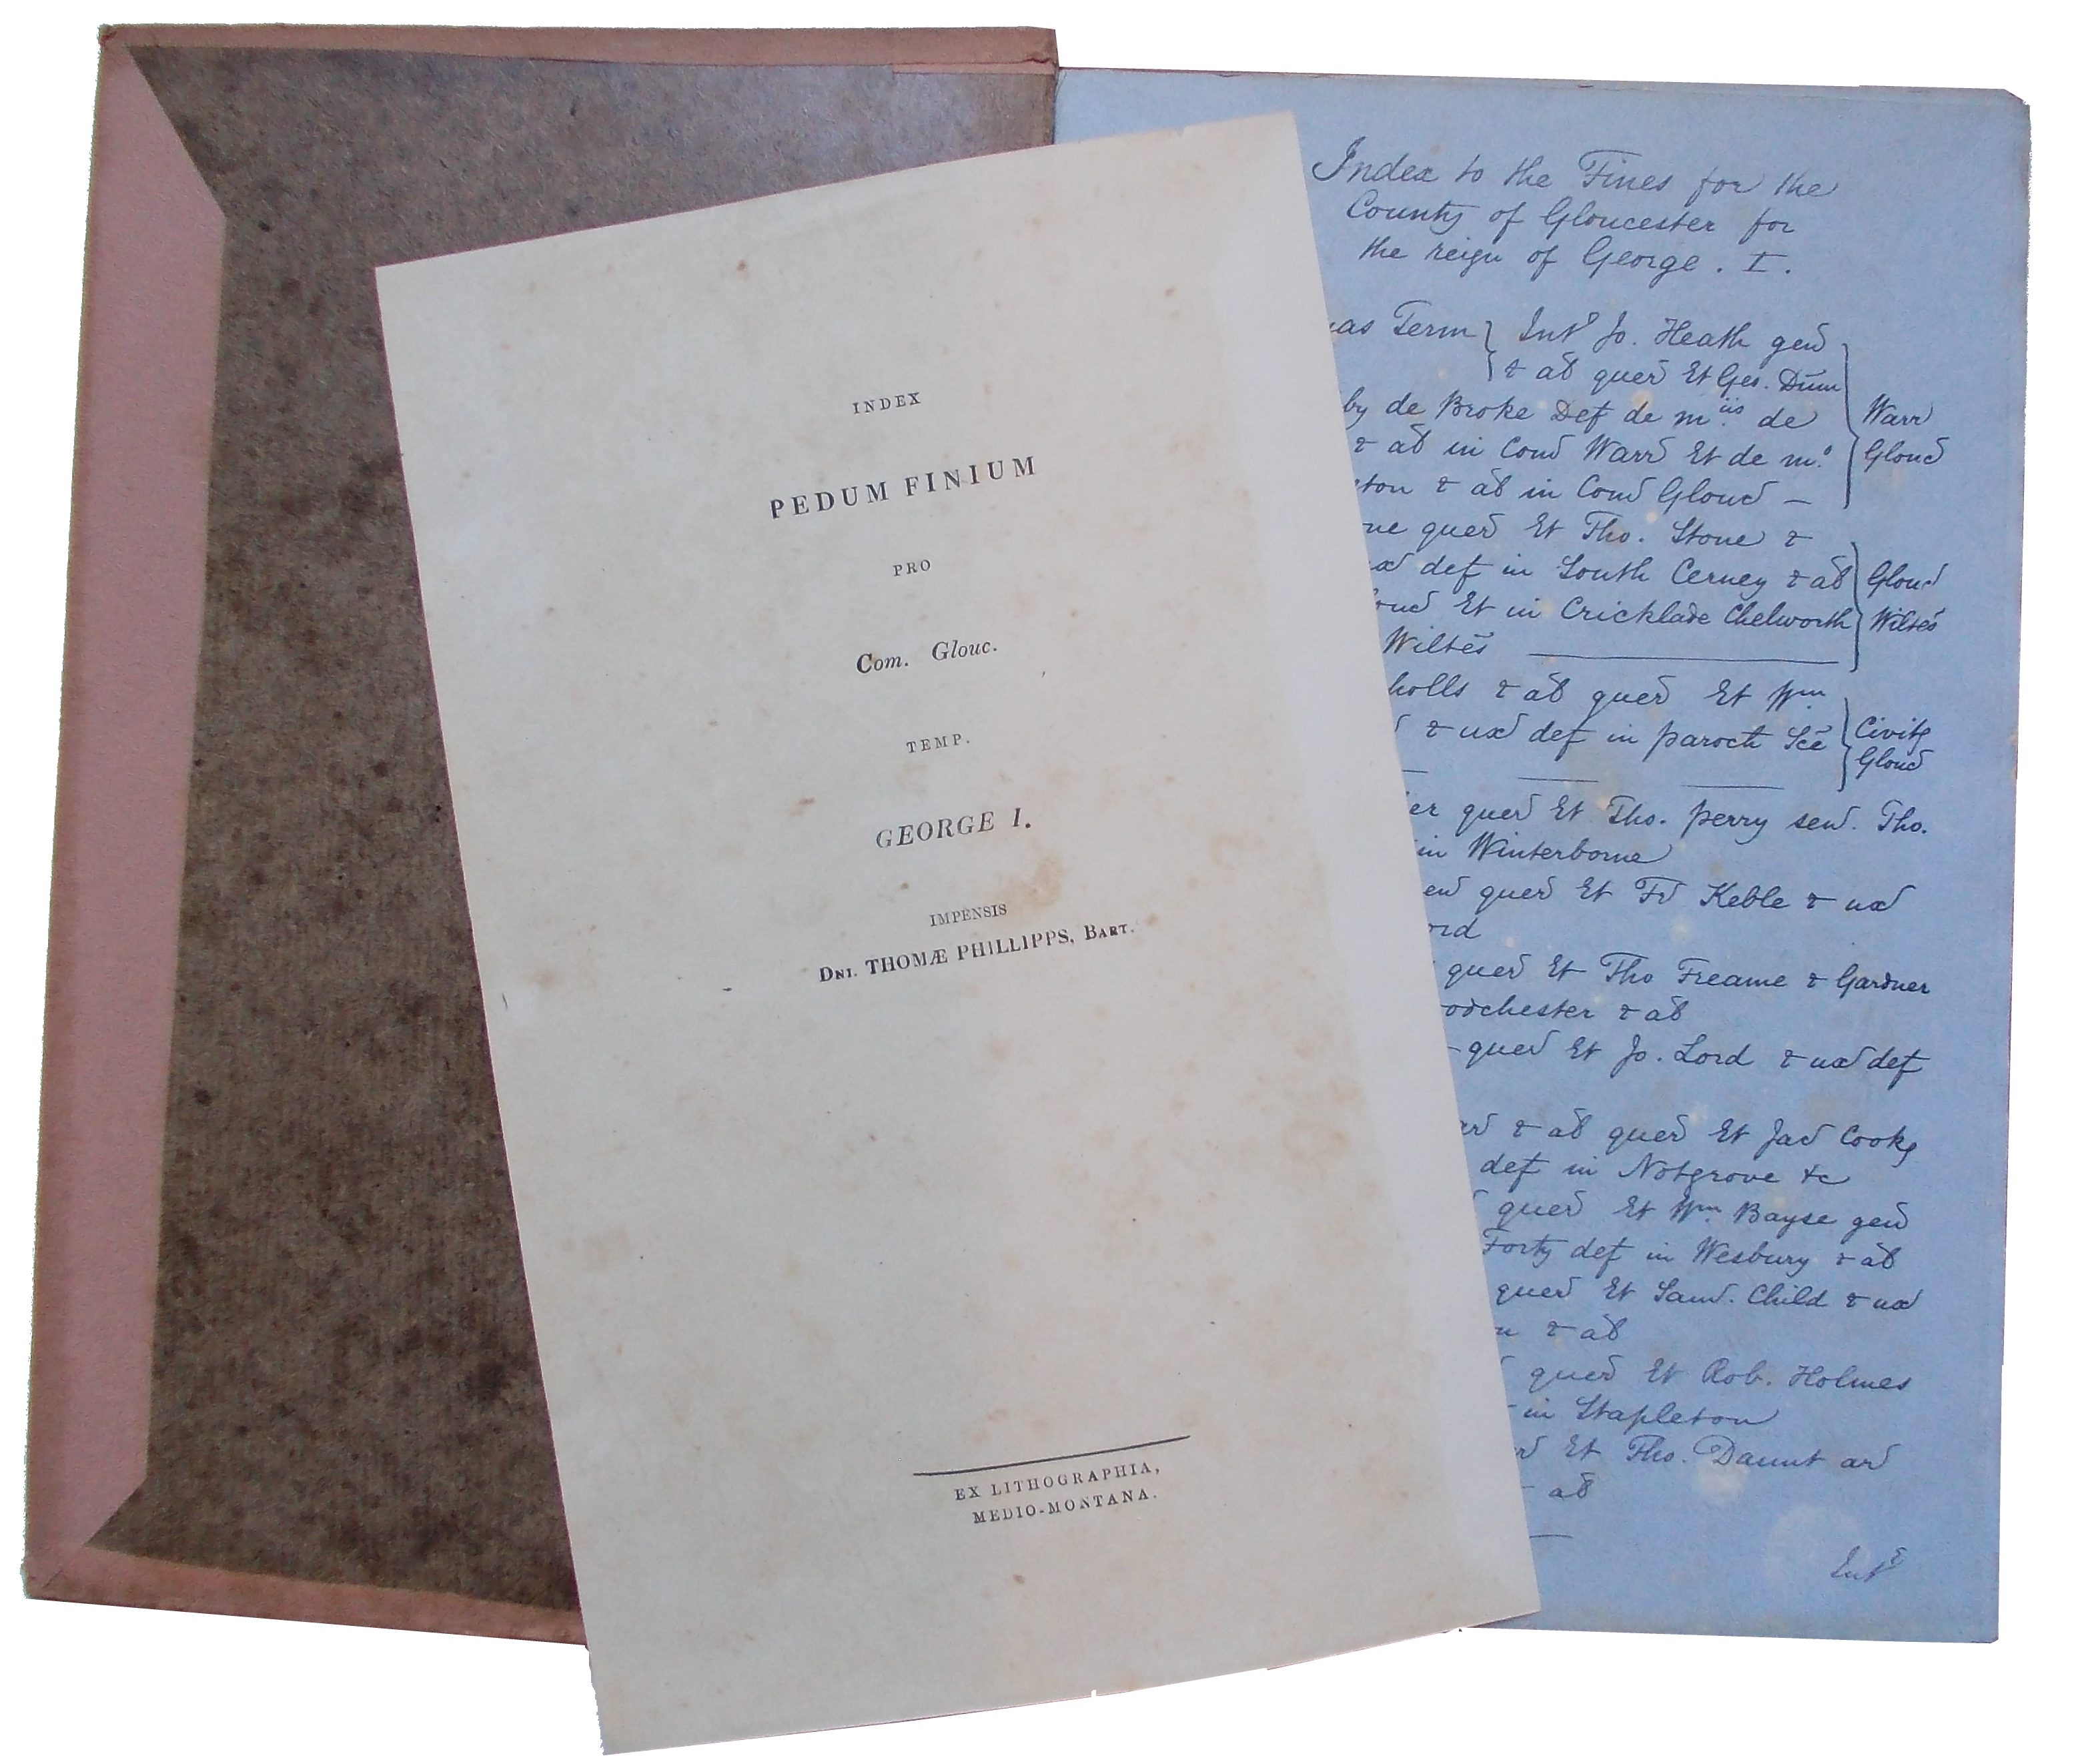 INDEX
PEDUM FINIUM
PRO
Com. Glouc.
TEMP.
GEORGE I.
IMPENSIS
DNI. THOMÆ PHILLIPPS, BART.
EX LITHOGRAPHIA,
MEDIO-MONTANA.
Index to the Fines for the
County of Gloucester for
the reign of George. I.
as Term Int Jo. Heath gen
& al quer Et Geo. Dum
by de Broke Def de m de Warr
& al in Com Warr Et de m. Glouc
ton & al in Com Glouc —
ne quer Et Tho. Stone &
ux def in South Cerney & al Glouc
ouc Et in Cricklade Chelworth Wiltes
Wiltes
holls & al quer Et Wm
& ux def in paroch Sce Civit
Glouc
er quer Et Tho. Perry sen. Tho.
in Winterborne
en quer Et Fr Keble & ux
ord
quer Et Tho Freame & Gardner
odchester & al
quer Et Jo. Lord & ux def
ar & al quer Et Jac Cooke
def in Notgrove &c
quer Et Wm. Bayse gen
Forty def in Wesbury & al
quer Et Sam. Child & ux
n & al
quer Et Rob. Holmes
in Stapleton
Et Tho. Daunt ar
al
Int